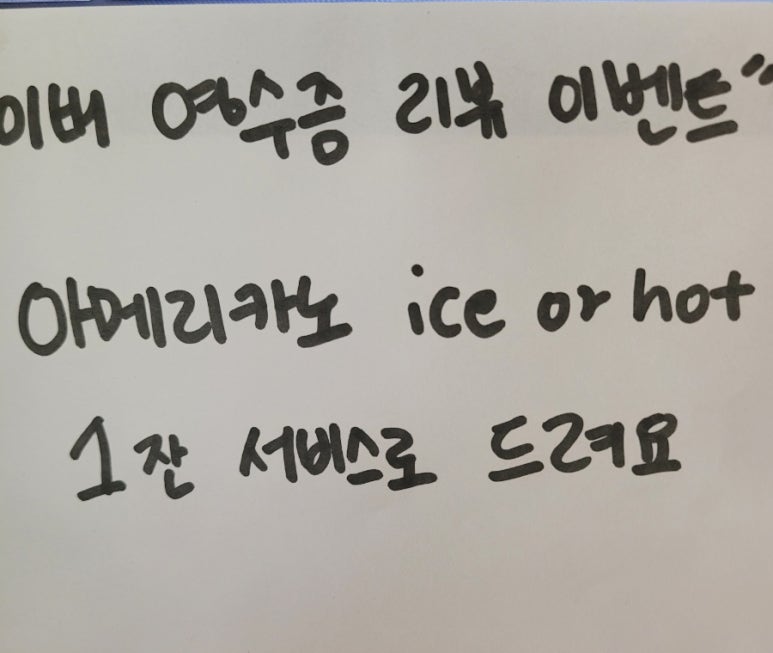 이버 영수증 리뷰 이벤트"
아메리카노 ice or hot
1잔 서비스로 드려요